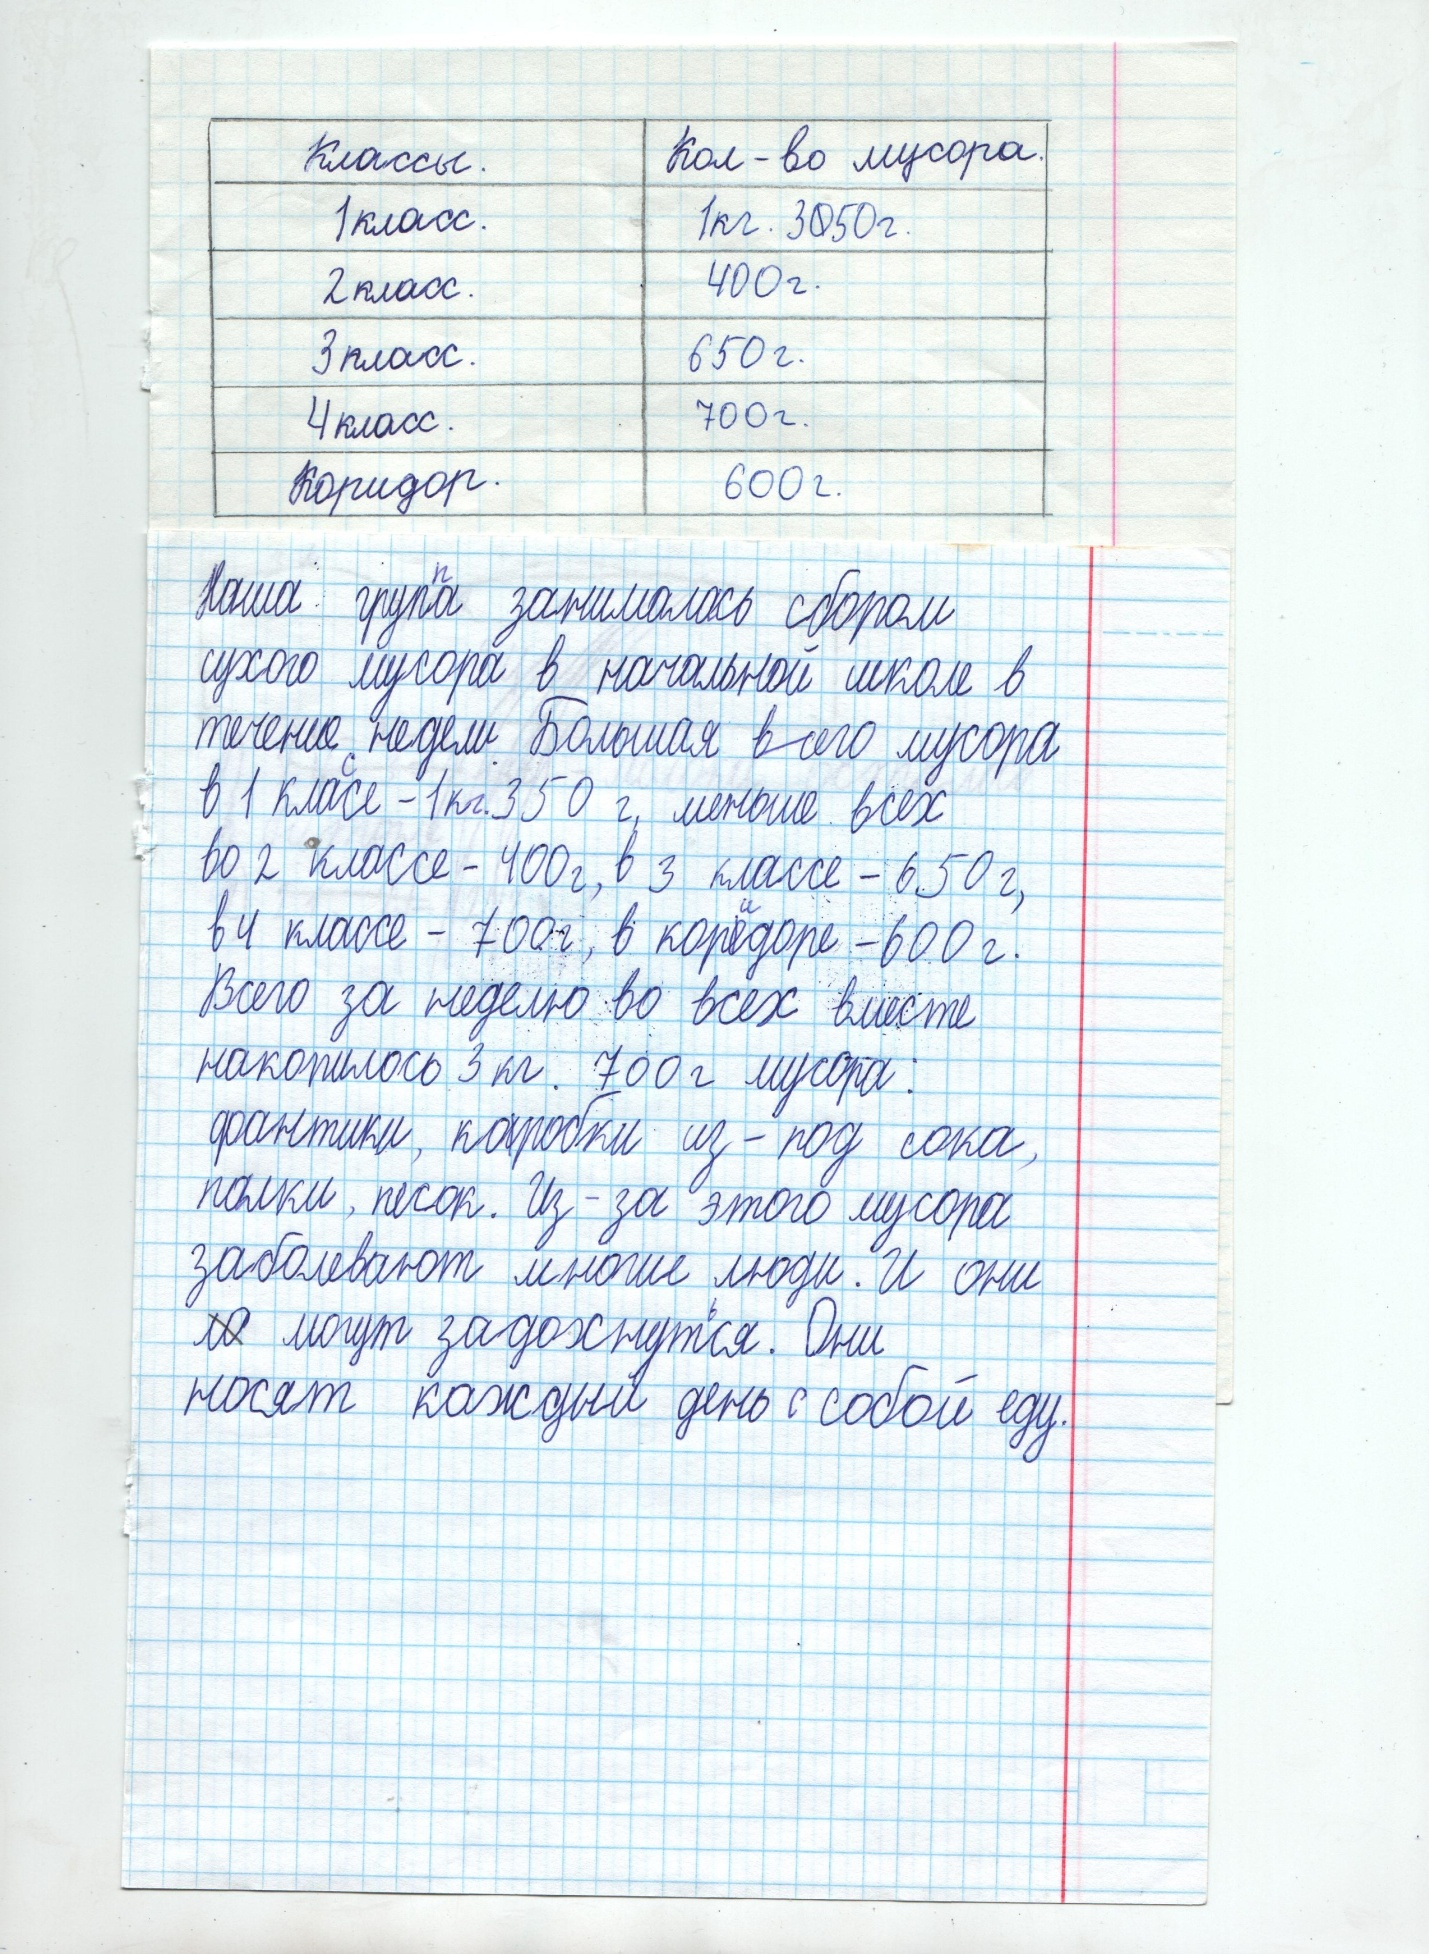 Классы. Кол-во мусора.
1класс. 1кг. 3050г.
2класс. 400г.
3класс. 650г.
4класс. 700г.
Коридор. 600г.
Наша группа занималась сбором
сухого мусора в начальной школе в
течение недели. Большая всего мусора
в 1 классе - 1кг.350 г, меньше всех
во 2 классе - 400г, в 3 классе - 650г,
в 4 классе - 700г, в коридоре - 600г.
Всего за неделю во всех вместе
накопилось 3 кг. 700г мусора:
фантики, каробки из-под сока,
палки, песок. Из-за этого мусора
заболевают многие люди. И они
могут задохнуться. Они
носят каждый день с собой еду.